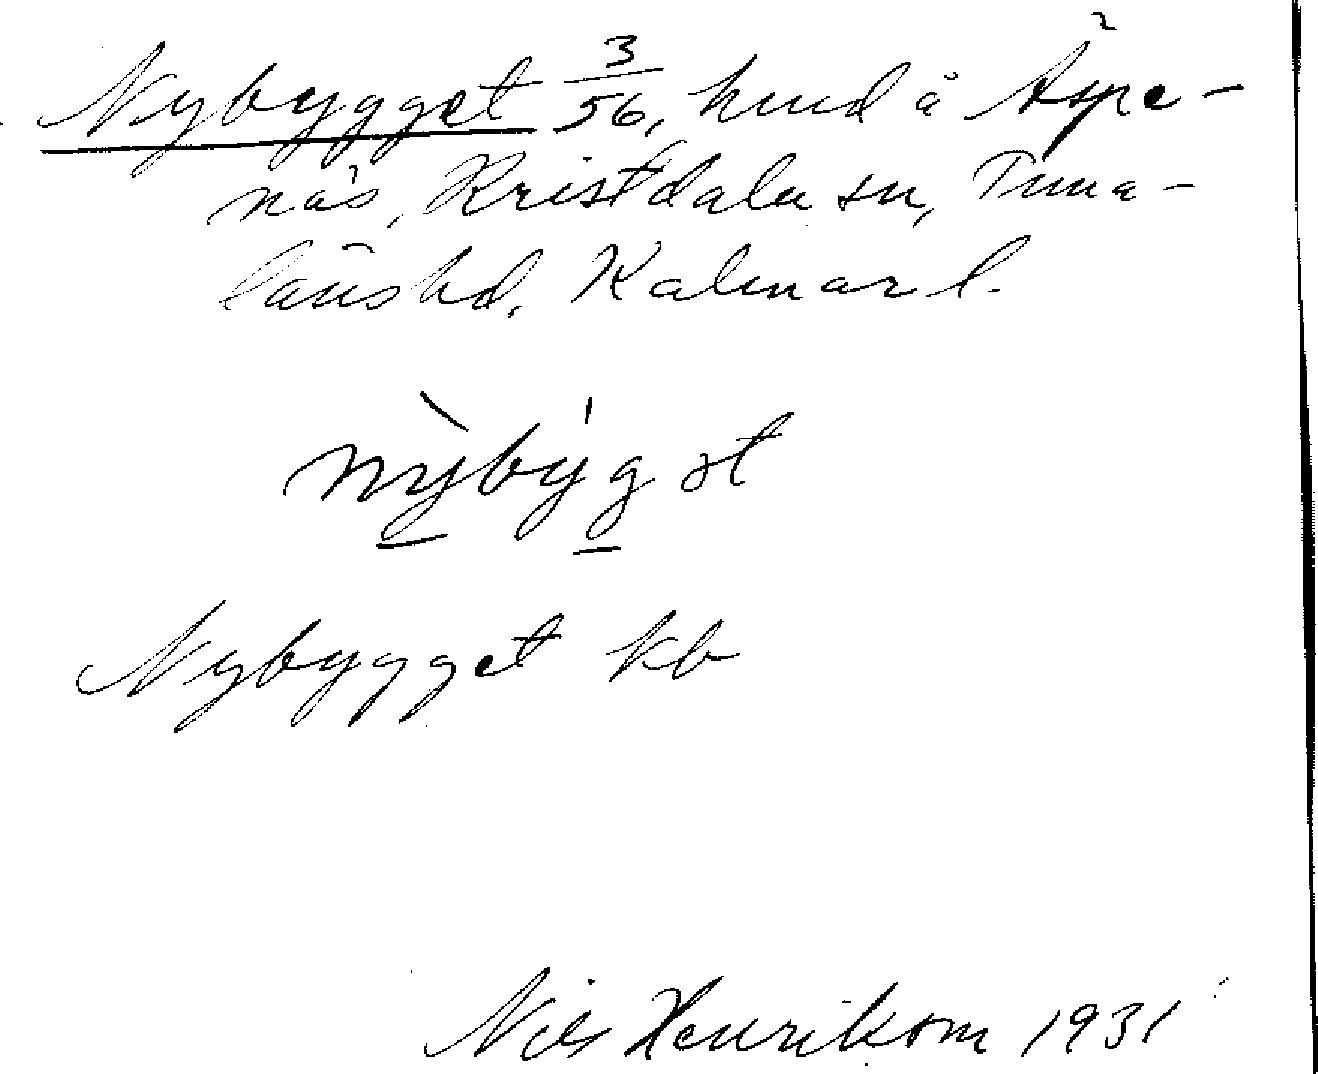 Nybygget 3/56, hmd å Äspe-
näs, Kristdala sn, Tuna-
läns hd, Kalmar l.
nỳbýgət
Nybygget kb
Nils Henrikson 1931